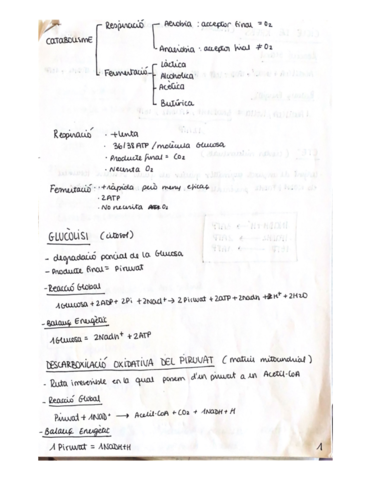 CATABOLISME
Respiració
Aeròbia : acceptor final = O2
Anaeròbia : acceptor final ≠ O2
Fermentació
Làctica
Alcohòlica
Acètica
Butírica
Respiració · + lenta
· 36/38 ATP / molècula Glucosa
· Producte final = CO2
· Necessita O2
Fermentació · + ràpida però meny eficaç
· 2ATP
· No necessita O2
GLUCÒLISI (citosol)
- degradació parcial de la Glucosa
- Producte final = Piruvat
- Reacció Global
1Glucosa + 2ADP + 2Pi + 2Nad+ → 2 Piruvat + 2ATP + 2nadh + 2H+ + 2H2O
- Balanç Energètic
1Glucosa = 2Nadh+ + 2ATP
DESCARBOXILACIÓ OXIDATIVA DEL PIRUVAT (matriu mitocondrial)
- Ruta irreversible en la qual passem d'un piruvat a un Acetil-CoA
- Reacció Global
Piruvat + 1NAD+ → Acetil-CoA + CO2 + 1NADH + H
- Balanç Energètic
1 Piruvat = 1NADH+H
1